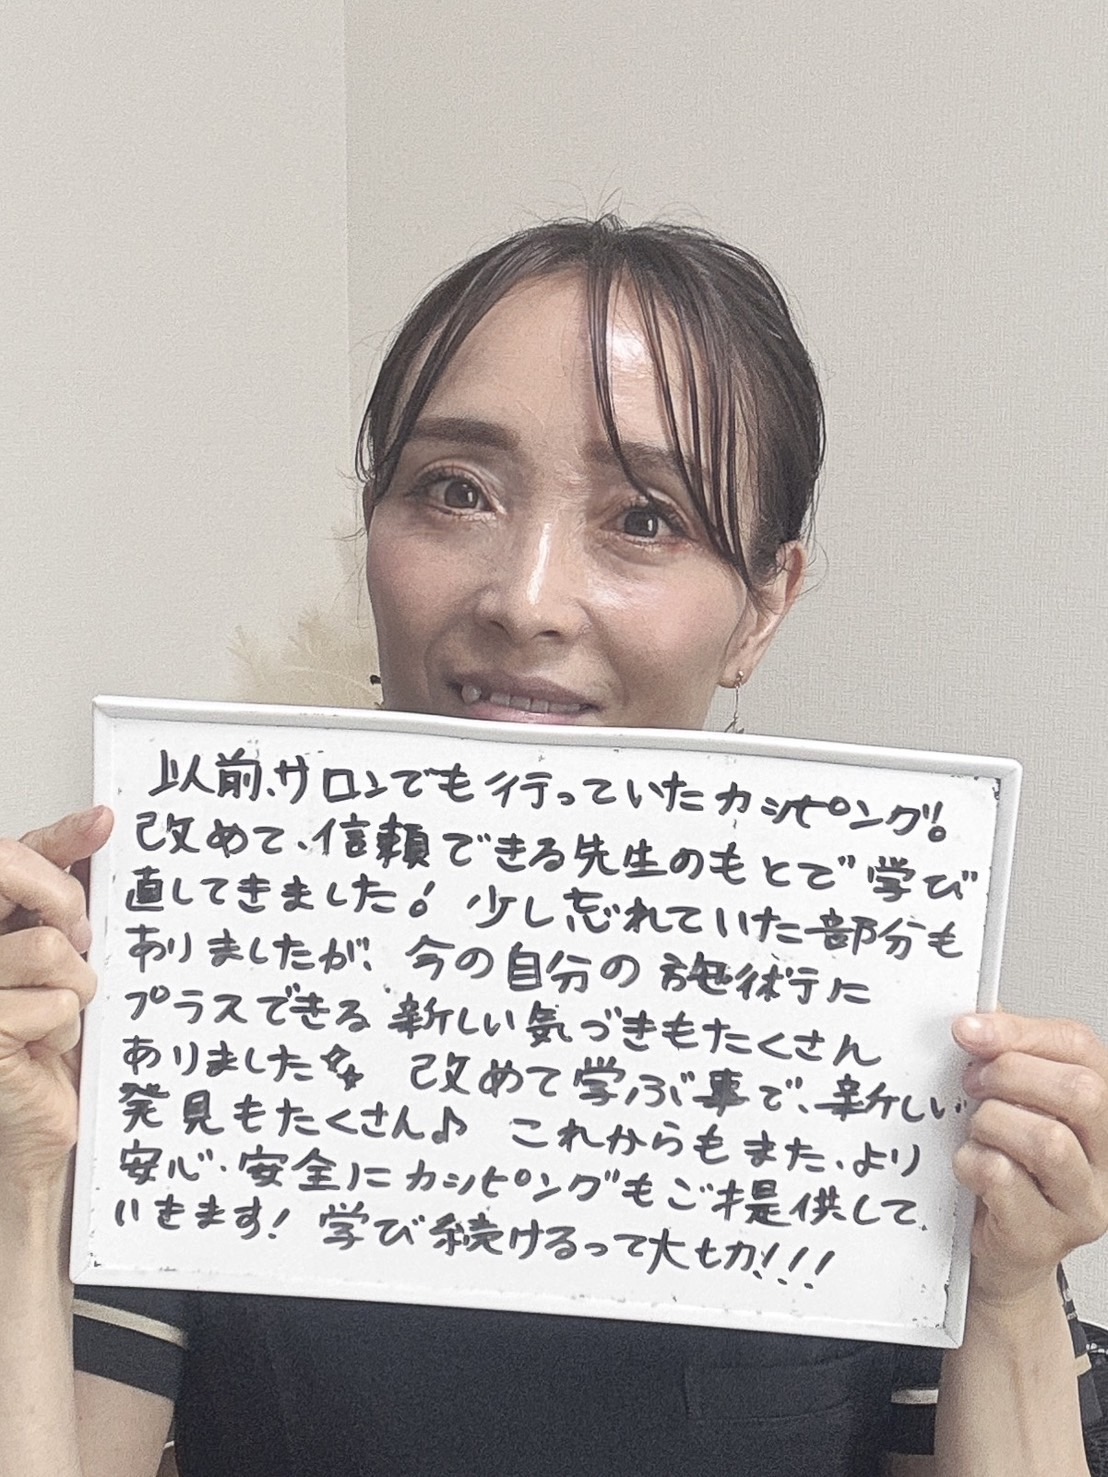 以前、サロンでも行っていたカッピング!。
改めて、信頼できる先生のもとで学び
直してきました! 少し忘れていた部分も
ありましたが、今の自分の施術に
プラスできる新しい気づきもたくさん
ありました✨ 改めて学ぶ事で、新しい
発見もたくさん♪ これからもまた、より
安心・安全にカッピングもご提供して
いきます! 学び続けるって大切!!!